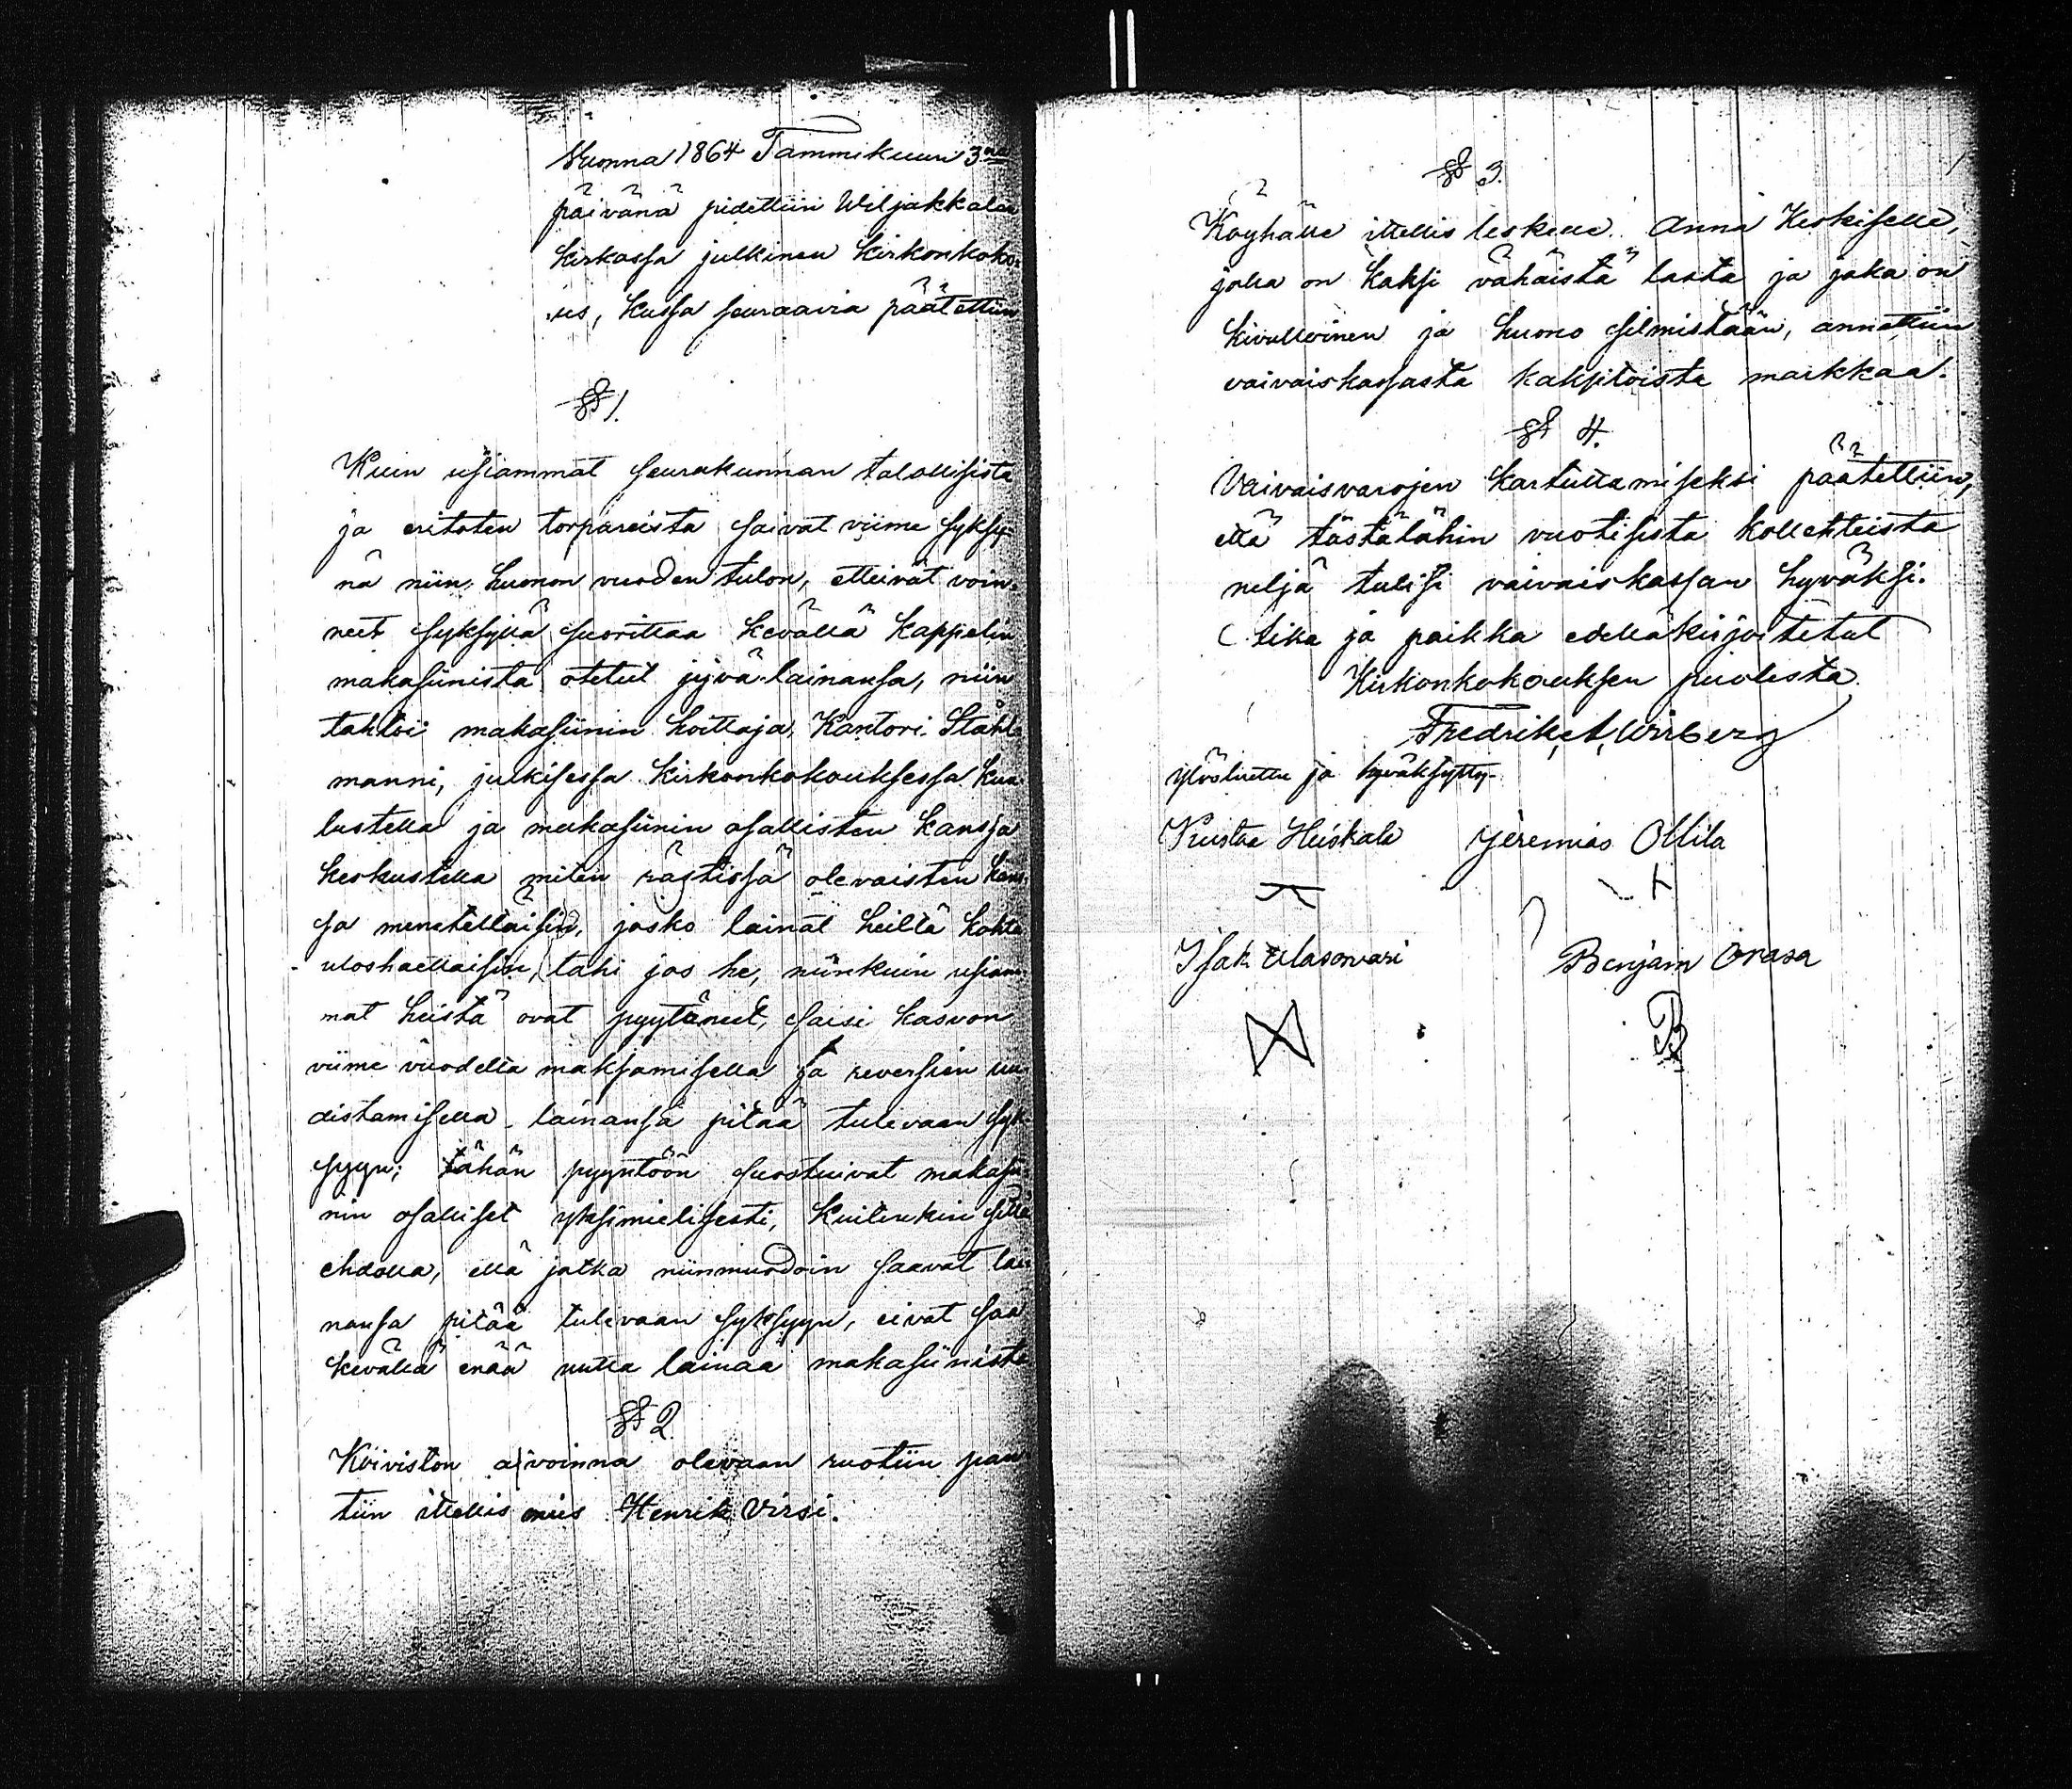 Vuonna 1864 Tammikuun 3na
päivänä pidettiin Wiljakkalan
kirkossa julkinen kirkonkoko-
us, kussa seuraavia päätettiin
§ 1.
Kuin usiammat seurakunnan talollisista
ja eritoten torpareista saivat viime syksy-
nä niin huonon vuoden tulon, etteivät voin-
neet syksyllä suorittaa kevällä kappelin
makasiinista otetut jyvä-lainansa, niin
tahtoi makasiinin hoittaja, Kantori Ståhl-
manni, julkisessa kirkonkokouksessa kuu-
lustella ja makasiinin osallisten kanssa
keskustella miten rästissä olevaisten kans-
sa meneteltäisiin, josko lainat heiltä kohta
uloshaettaisiin, tahi jos he, niinkuin usiam-
mat heistä ovat pyytäneet, saisi kasvon
viime vuodelta maksamisella ja reversien uu-
distamisella lainansa pitää tulevaan syk-
syyn; tähän pyyntöön suostuivat makasii-
nin osalliset yksimielisesti, kuitenkin sillä
ehdolla, että jotka niinmuodoin saavat lai-
nansa pitää tulevaan syksyyn, eivät saa
kevällä enää uutta lainaa makasiinista
§ 2
Koiviston avoinna olevaan ruotiin pan-
tiin itellis mies Henrik Virsi.
§ 3.
Köyhälle itellis leskelle Anna Keskiselle,
jolla on kaksi vähäistä lasta ja joka on
kivulloinen ja huono silmistään, annettiin
vaivaiskassasta kaksitoista markkaa.
§ 4.
Vaivaisvarojen kartuttamiseksi päätettiin,
että tästälähin vuotisista kollehteista
neljä tulisi vaivaiskassan hyväksi.
Aika ja paikka edelläkirjoitetut
Kirkonkokouksen puolesta
Fredrik A. Wirberg
ylösluettu ja hyväksytty
Kustaa Heiskala Jeremias Ollila
Isak Alasovari Benjam Orasa
B